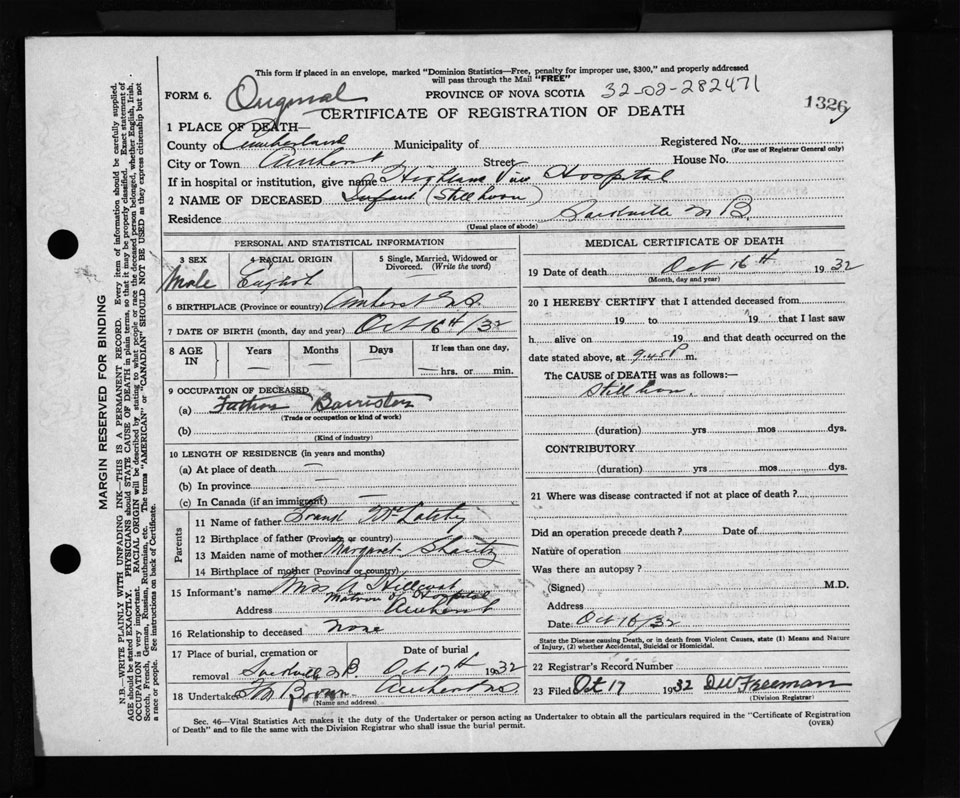 This form if placed in an envelope, marked "Dominion Statistics—Free, penalty for improper use, $300," and properly addressed
will pass through the Mail "FREE"
FORM 6. Original PROVINCE OF NOVA SCOTIA 32-02-282471
CERTIFICATE OF REGISTRATION OF DEATH 1326
1 PLACE OF DEATH—
County of Cumberland Municipality of Registered No.
(For use of Registrar General only)
City or Town Amherst Street House No.
If in hospital or institution, give name Highland View Hospital
2 NAME OF DECEASED Infant (Stillborn)
Residence Sackville N B.
(Usual place of abode)
PERSONAL AND STATISTICAL INFORMATION
3 SEX 4 RACIAL ORIGIN 5 Single, Married, Widowed or
Divorced. (Write the word)
Male English
6 BIRTHPLACE (Province or country) Amherst N.S.
7 DATE OF BIRTH (month, day and year) Oct 16th/32
8 AGE IN Years Months Days If less than one day,
— — — — hrs. or min.
9 OCCUPATION OF DECEASED
(a) Father Barrister
(Trade or occupation or kind of work)
(b)
(Kind of industry)
10 LENGTH OF RESIDENCE (in years and months)
(a) At place of death —
(b) In province —
(c) In Canada (if an immigrant) —
Parents
11 Name of father
12 Birthplace of father (Province or country)
13 Maiden name of mother Margaret
14 Birthplace of mother (Province or country)
15 Informant's name Mrs
Matron of Hospital
Address Amherst
16 Relationship to deceased None
17 Place of burial, cremation or Date of burial
removal Sackville N.B. Oct 17th 1932
18 Undertaker Brown Amherst N.S.
(Name and address)
MEDICAL CERTIFICATE OF DEATH
19 Date of death Oct 16th 1932
(Month, day and year)
20 I HEREBY CERTIFY that I attended deceased from
19 to 19 that I last saw
h alive on 19 and that death occurred on the
date stated above, at 9.45 P m.
The CAUSE of DEATH was as follows:—
Stillborn
(duration) yrs mos dys.
CONTRIBUTORY
(duration) yrs mos dys.
21 Where was disease contracted if not at place of death?
Did an operation precede death? Date of
Nature of operation
Was there an autopsy?
(Signed) M.D.
Address
Date Oct 16/32
State the Disease causing Death, or in death from Violent Causes, state (1) Means and Nature
of Injury, (2) whether Accidental, Suicidal or Homicidal.
22 Registrar's Record Number
23 Filed Oct 17 1932 DW Freeman
(Division Registrar)
Sec. 46—Vital Statistics Act makes it the duty of the Undertaker or person acting as Undertaker to obtain all the particulars required in the "Certificate of Registration
of Death" and to file the same with the Division Registrar who shall issue the burial permit. (OVER)
MARGIN RESERVED FOR BINDING
N.B.—WRITE PLAINLY WITH UNFADING INK—THIS IS A PERMANENT RECORD. Every item of information should be carefully supplied.
AGE should be stated EXACTLY. PHYSICIANS should STATE CAUSE OF DEATH in plain terms, so that it may be properly classified. Exact statement of
OCCUPATION is very important. RACIAL ORIGIN will be described by stating to what people or race the deceased person belonged, whether English, Irish,
Scotch, French, German, Russian, Ruthenian, etc. The terms "AMERICAN" or "CANADIAN" SHOULD NOT BE USED as they express citizenship but not
a race or people. See instructions on back of Certificate.